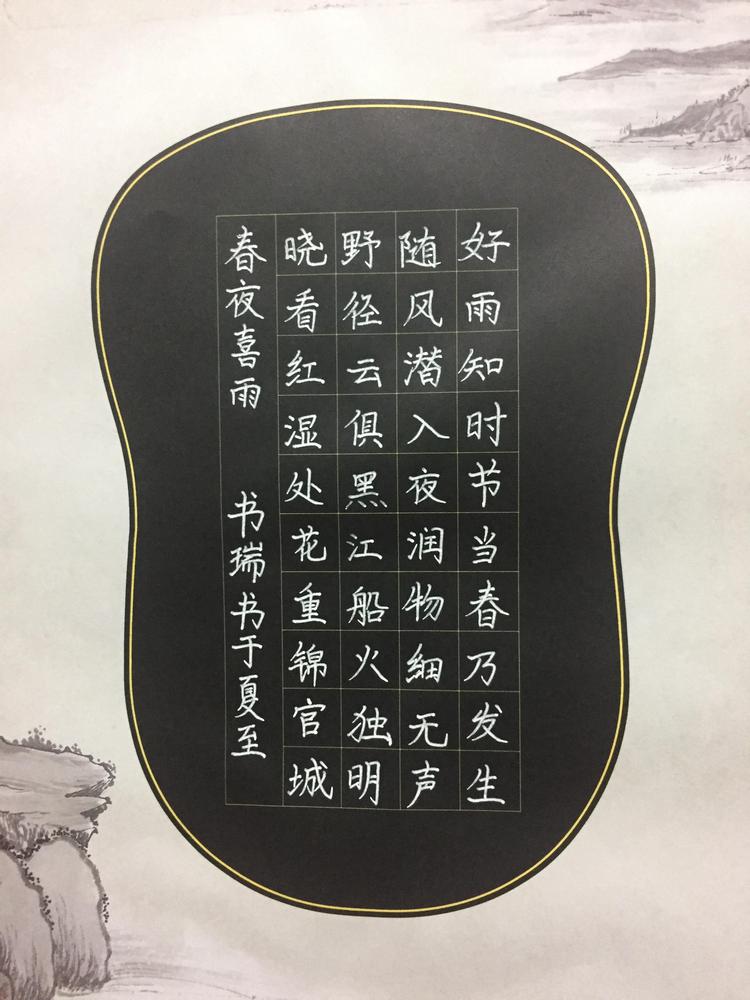 好雨知时节当春乃发生
随风潜入夜润物细无声
野径云俱黑江船火独明
晓看红湿处花重锦官城
春夜喜雨 书瑞书于夏至